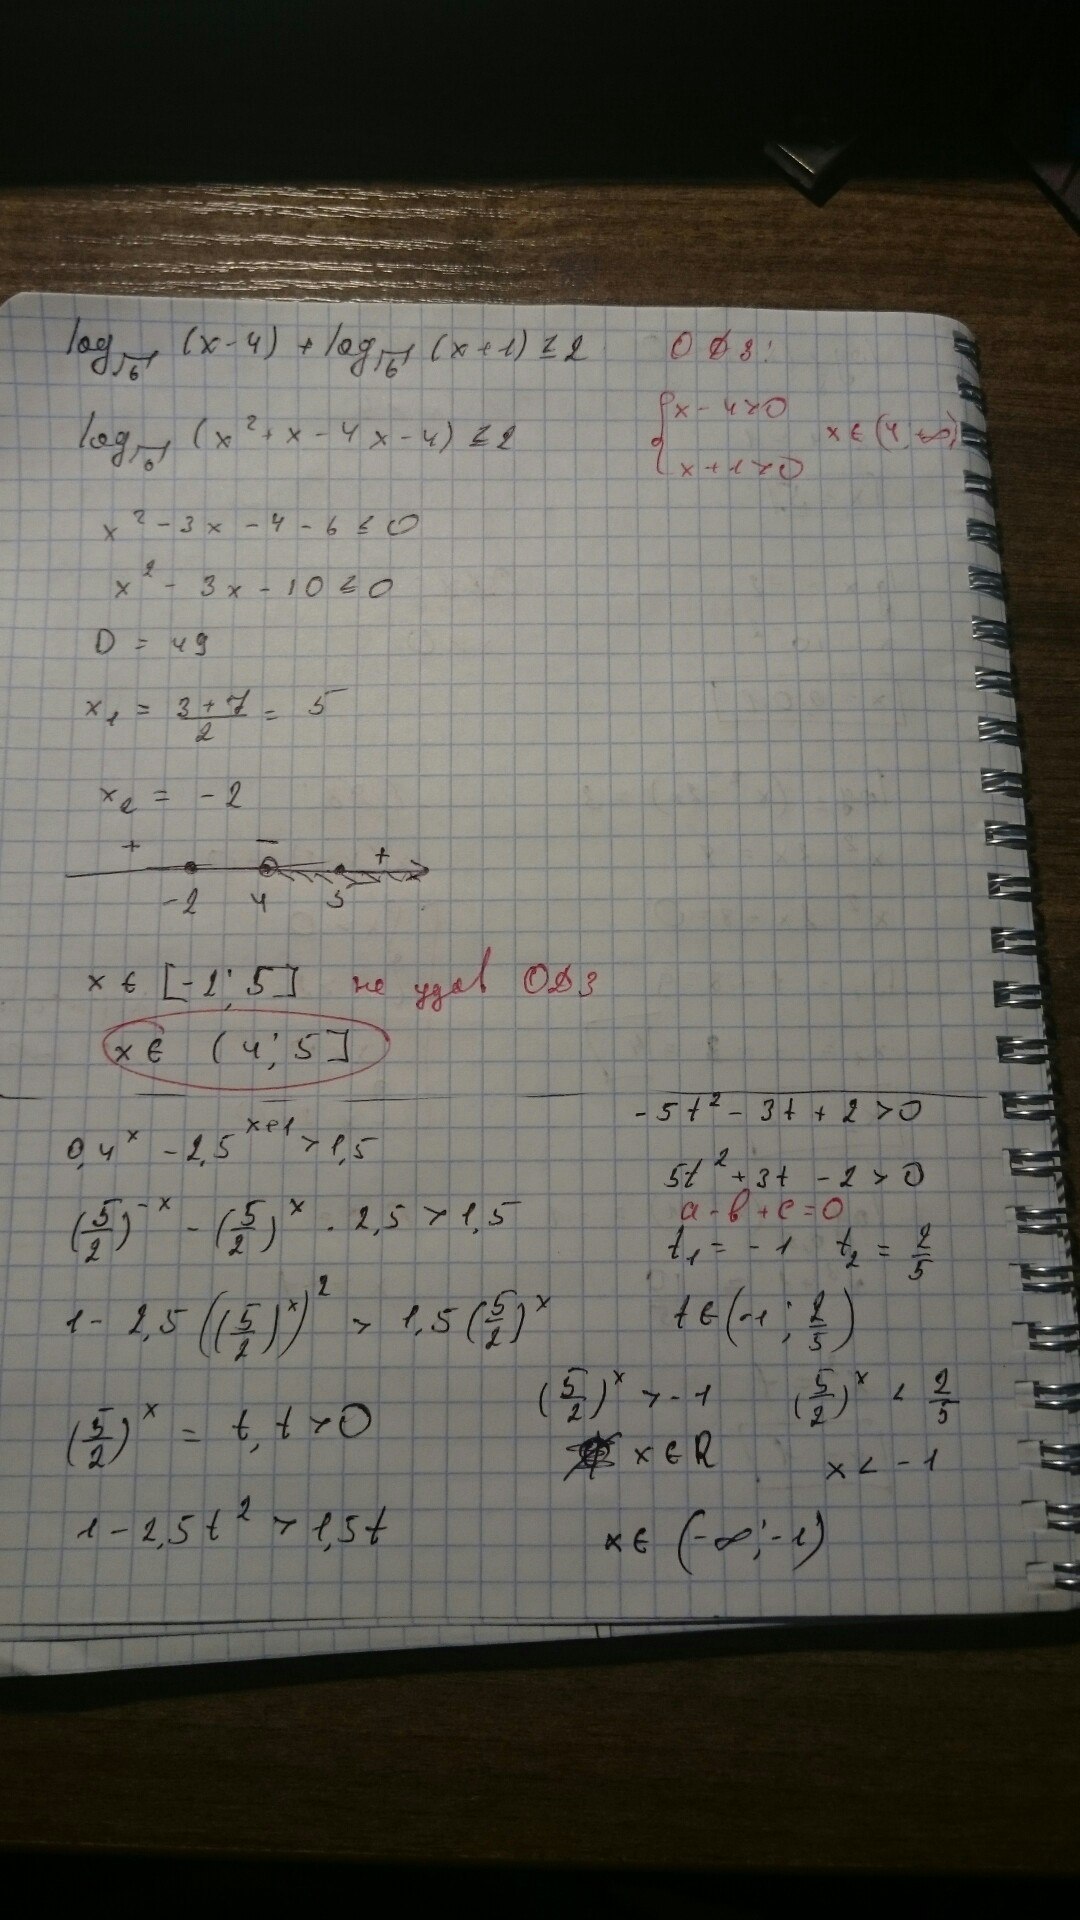 log√6 (x-4) + log√6 (x+1) ≤ 2
ОДЗ:
{x-4>0
x+1>0
x ∈ (4; +∞)
log√6 (x² + x - 4x - 4) ≤ 2
x² - 3x - 4 - 6 ≤ 0
x² - 3x - 10 ≤ 0
D = 49
x₁ = (3+7)/2 = 5
x₂ = -2
+ - +
-2 4 5
x ∈ [-2; 5] не удов ОДЗ
x ∈ (4; 5]
0,4^x - 2,5^(x+1) > 1,5
(5/2)^(-x) - (5/2)^x · 2,5 > 1,5
1 - 2,5((5/2)^x)² > 1,5(5/2)^x
(5/2)^x = t, t > 0
1 - 2,5t² > 1,5t
-5t² - 3t + 2 > 0
5t² + 3t - 2 > 0
a - b + c = 0
t₁ = -1 t₂ = 2/5
t ∈ (-1; 2/5)
(5/2)^x > -1 (5/2)^x < 2/5
x ∈ R x < -1
x ∈ (-∞; -1)